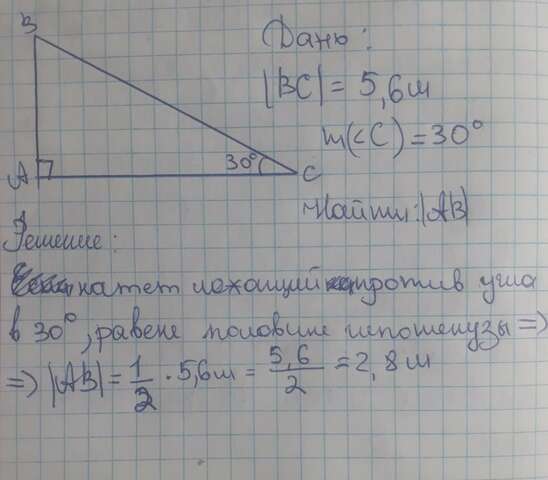 B
Дано:
|BC| = 5,6м
m(<C) = 30°
30°
A
C
Найти: |AB|
Решение:
катет лежащий против угла
в 30°, равен половине гипотенузы =>
=> |AB| = 1/2 · 5,6м = 5,6/2 = 2,8м